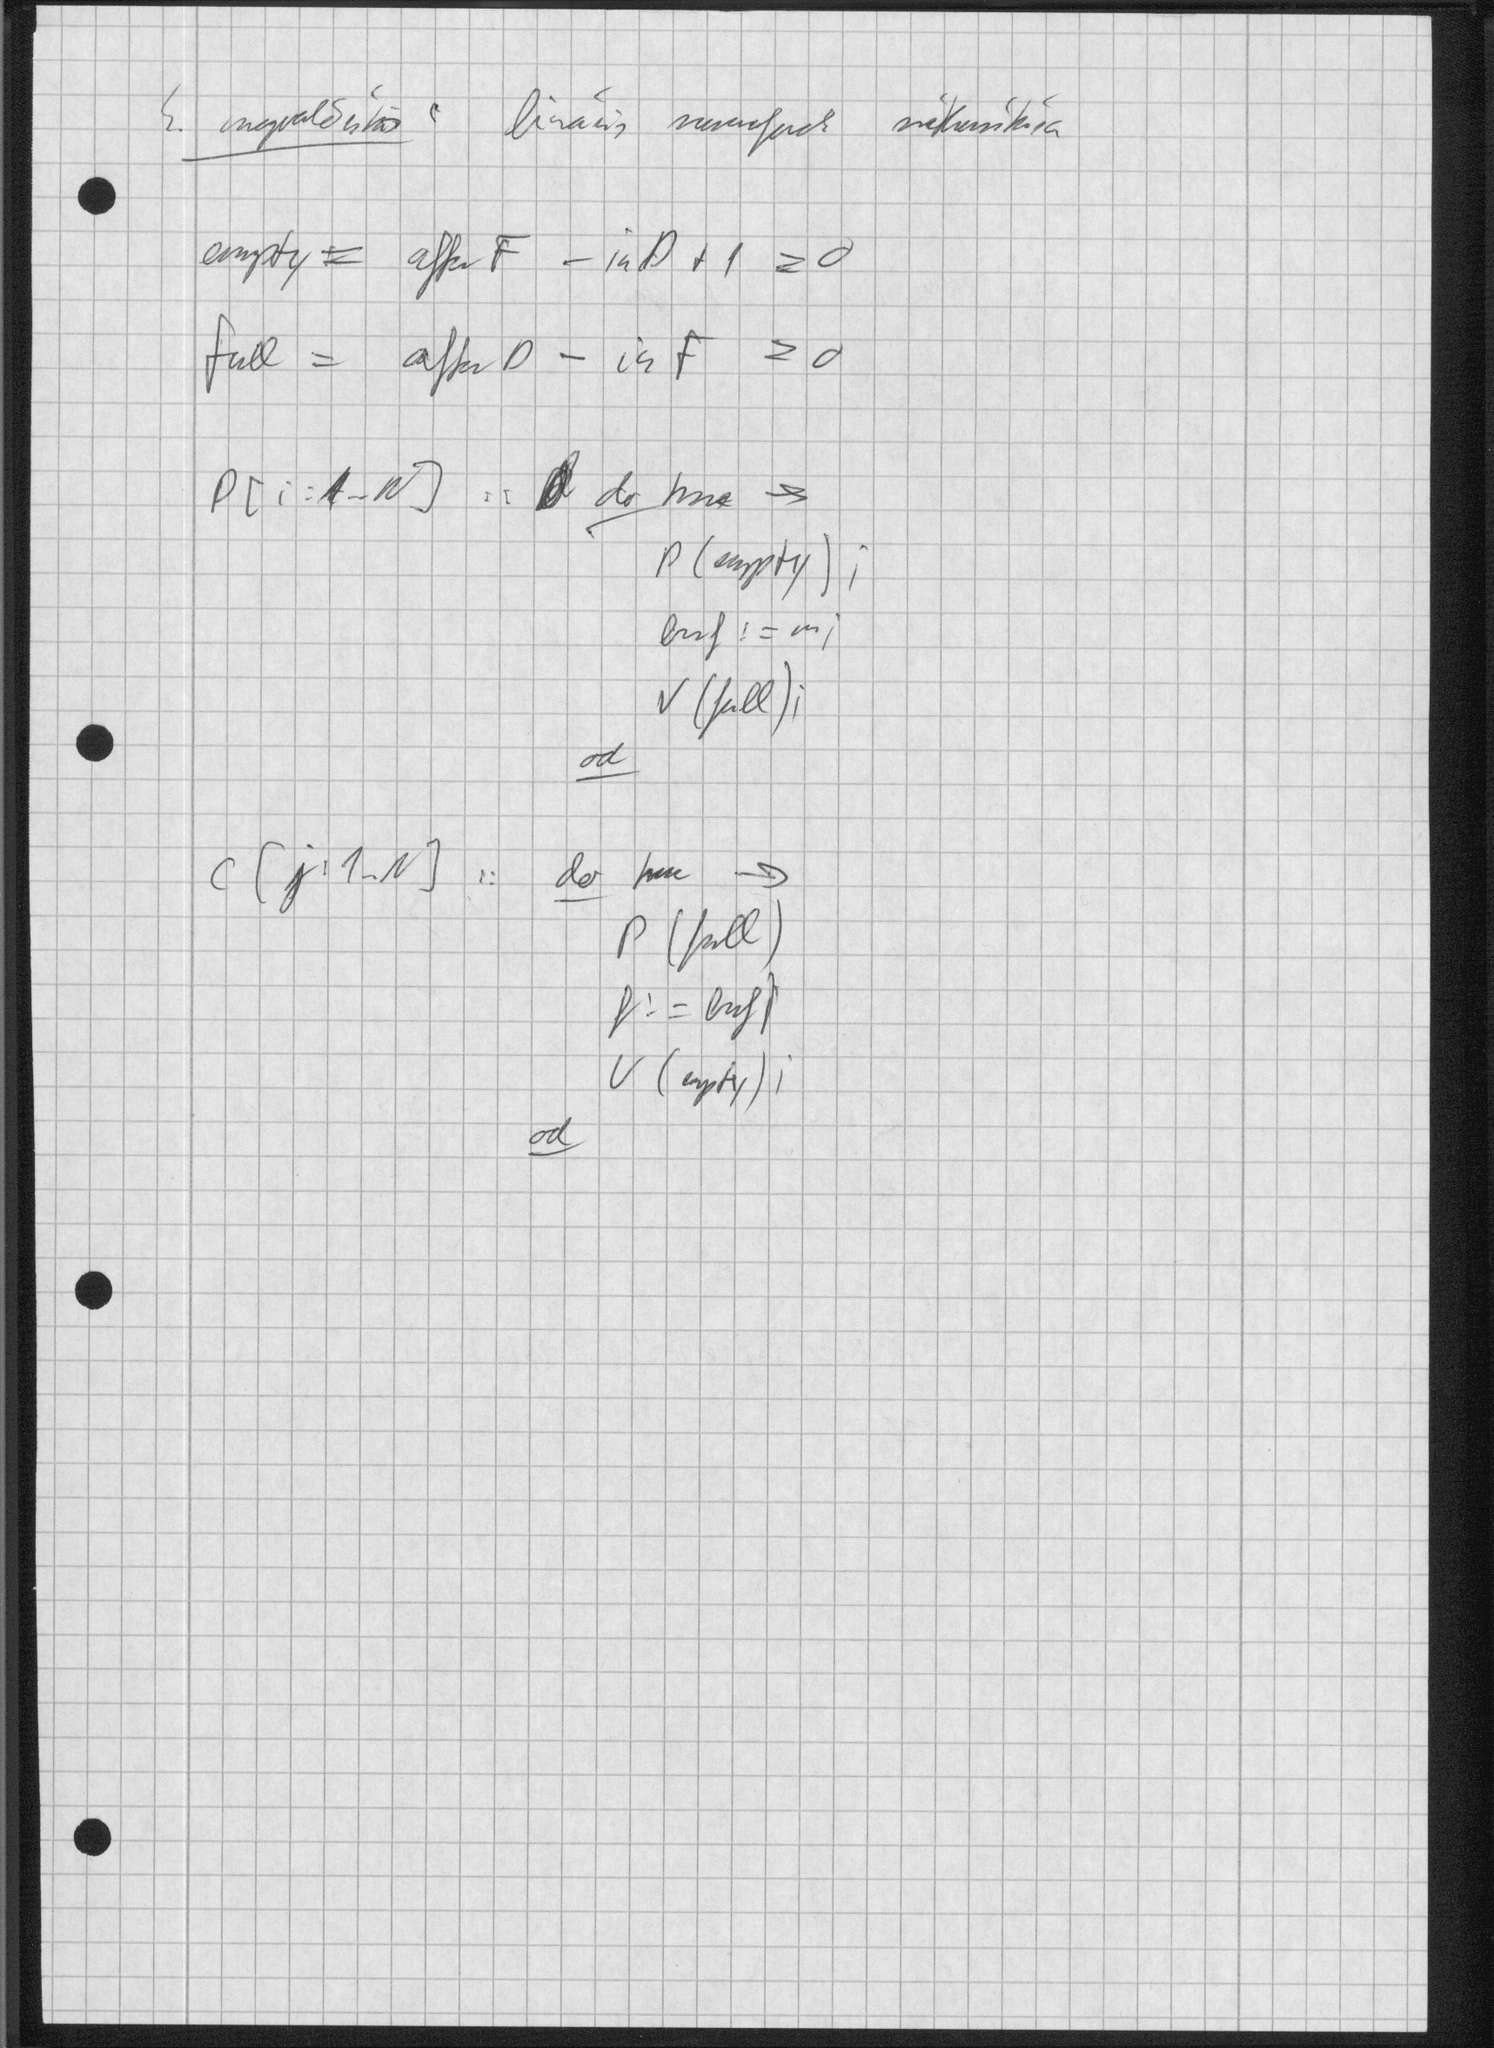 megvalósítás: bináris
empty = after F - in D + 1 ≥ 0
full = after D - in F ≥ 0
P[i:1..N] :: do true →
P(empty);
buf := m;
V(full);
od
C[j:1..N] :: do true →
P(full)
:= buf;
V(empty);
od